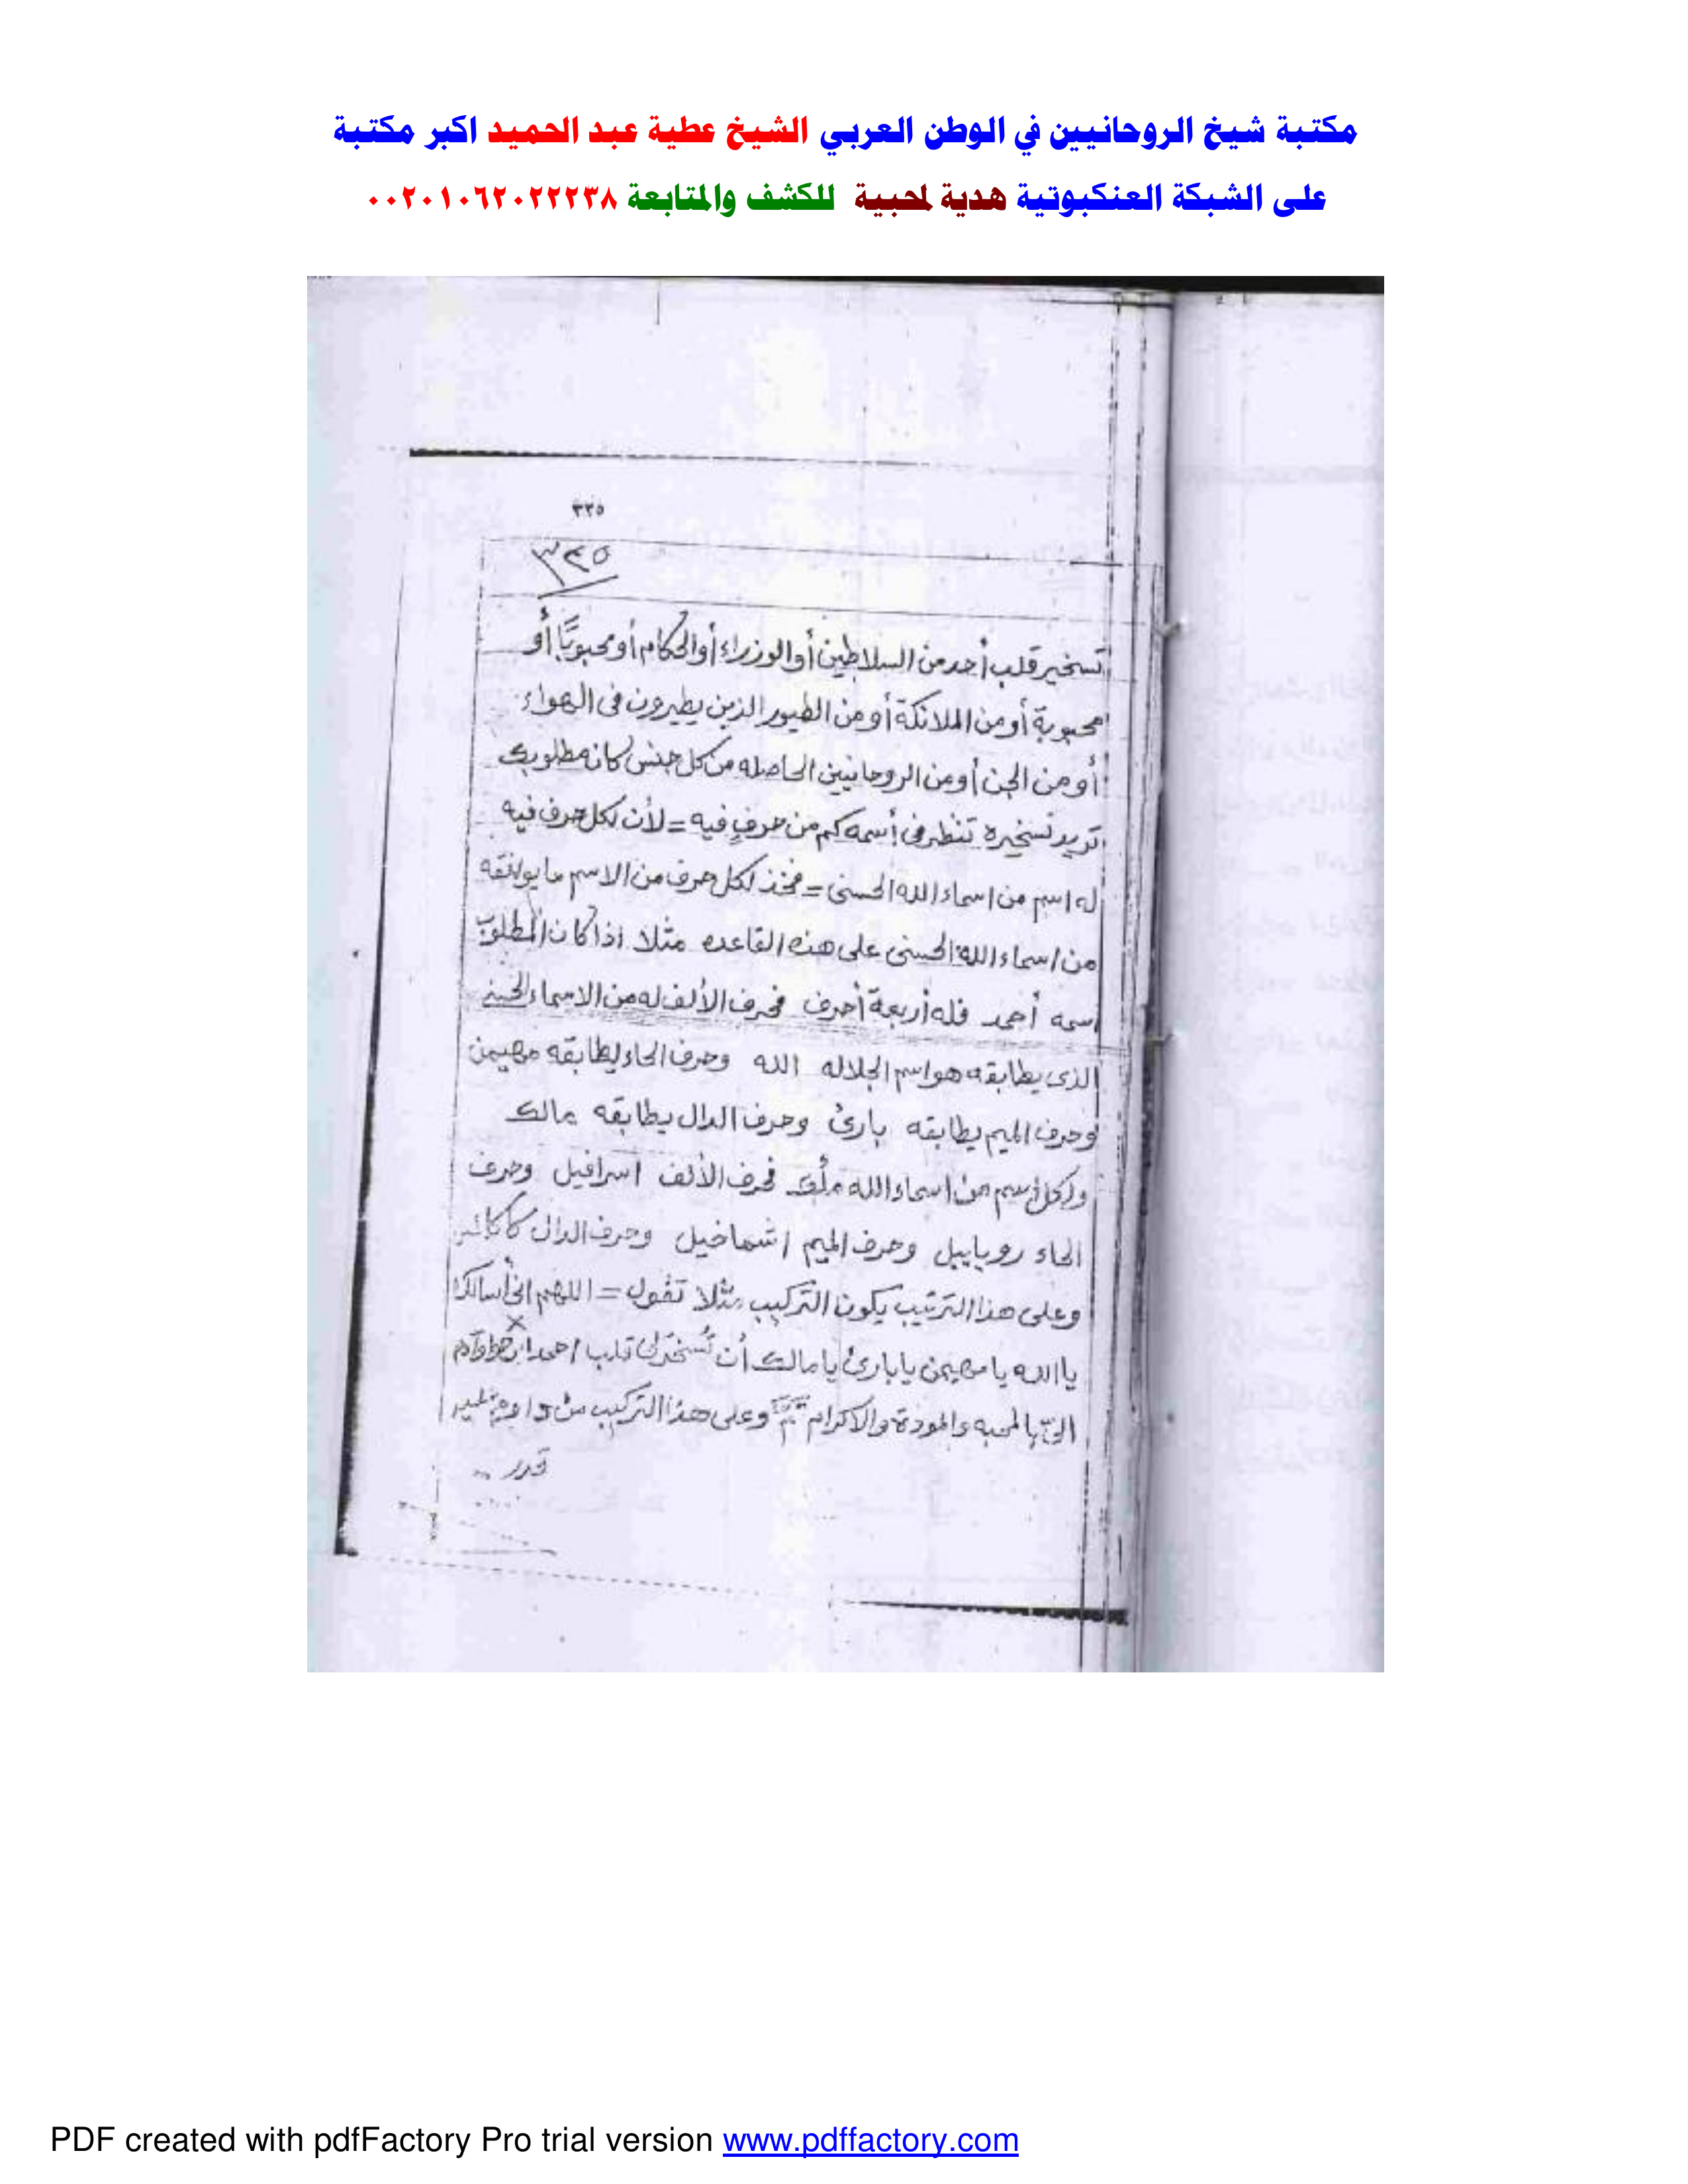 مكتبة شيخ الروحانيين في الوطن العربي الشيخ عطية عبد الحميد اكبر مكتبة
على الشبكة العنكبوتية هدية لمحبية للكشف والمتابعة ٠٠٢٠١٠٦٢٠٢٢٢٣٨
٣٢٥
تسخير قلب أحد من السلاطين أو الوزراء أو الحكام أو محبوبًا أو
محبوبة أو من الملائكة أو من الطيور الذين يطيرون فى الهواء
أو من الجن أو من الروحانيين الحاصله من كل جنس كان مطلوبك
تريد تسخيره تنظر فى أسمه كم من حرفٍ فيه = لأن لكل حرف فيه
له اسم من اسماء الله الحسنى = فخذ لكل حرف من الاسم ما يوافقه
من اسماء الله الحسنى على هذه القاعده مثلا اذا كان المطلوب
اسمه أحمد فله أربعة أحرف فحرف الألف له من الاسماء الحسنى
الذى يطابقه هو اسم الجلاله الله وحرف الحاء يطابقه مهيمن
وحرف الميم يطابقه بارئ وحرف الدال يطابقه مالك
ولكل اسم من اسماء الله ملك فحرف الألف اسرافيل وحرف
الحاء روياييل وحرف الميم اشماخيل وحرف الدال
وعلى هذا الترتيب يكون التركيب مثلا تقول = اللهم انى أسالك
يا الله يا مهيمن يا بارئ يا مالك أن تُسخر لى قلب احمد ابن
الىّ بالمحبه والموده والاكرام وعلى هذا التركيب
PDF created with pdfFactory Pro trial version www.pdffactory.com